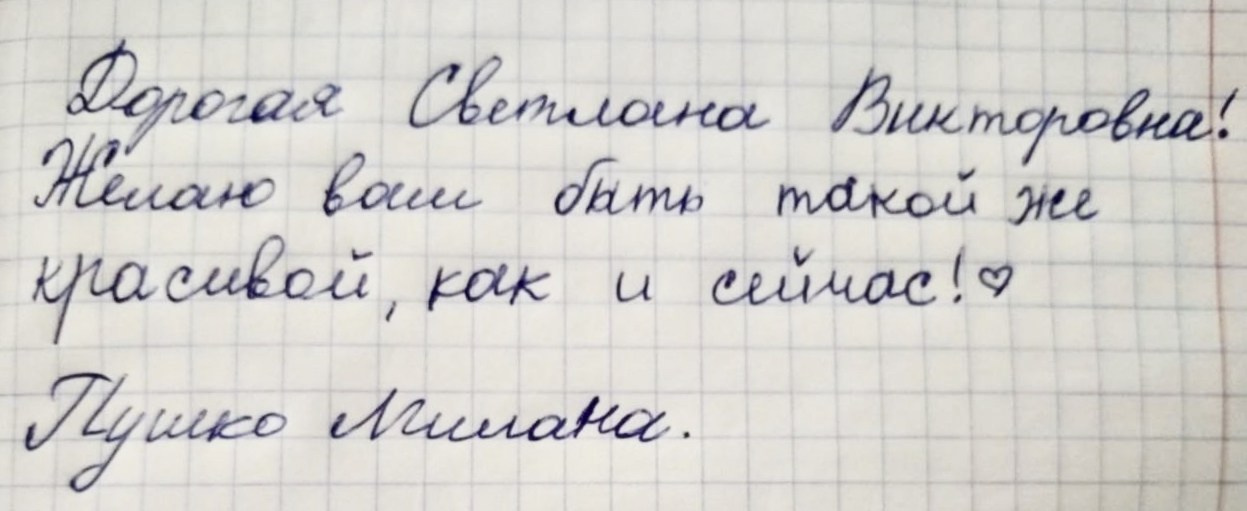 Дорогая Светлана Викторовна!
Желаю вам быть такой же
красивой, как и сейчас!♡
Пушко Милана.